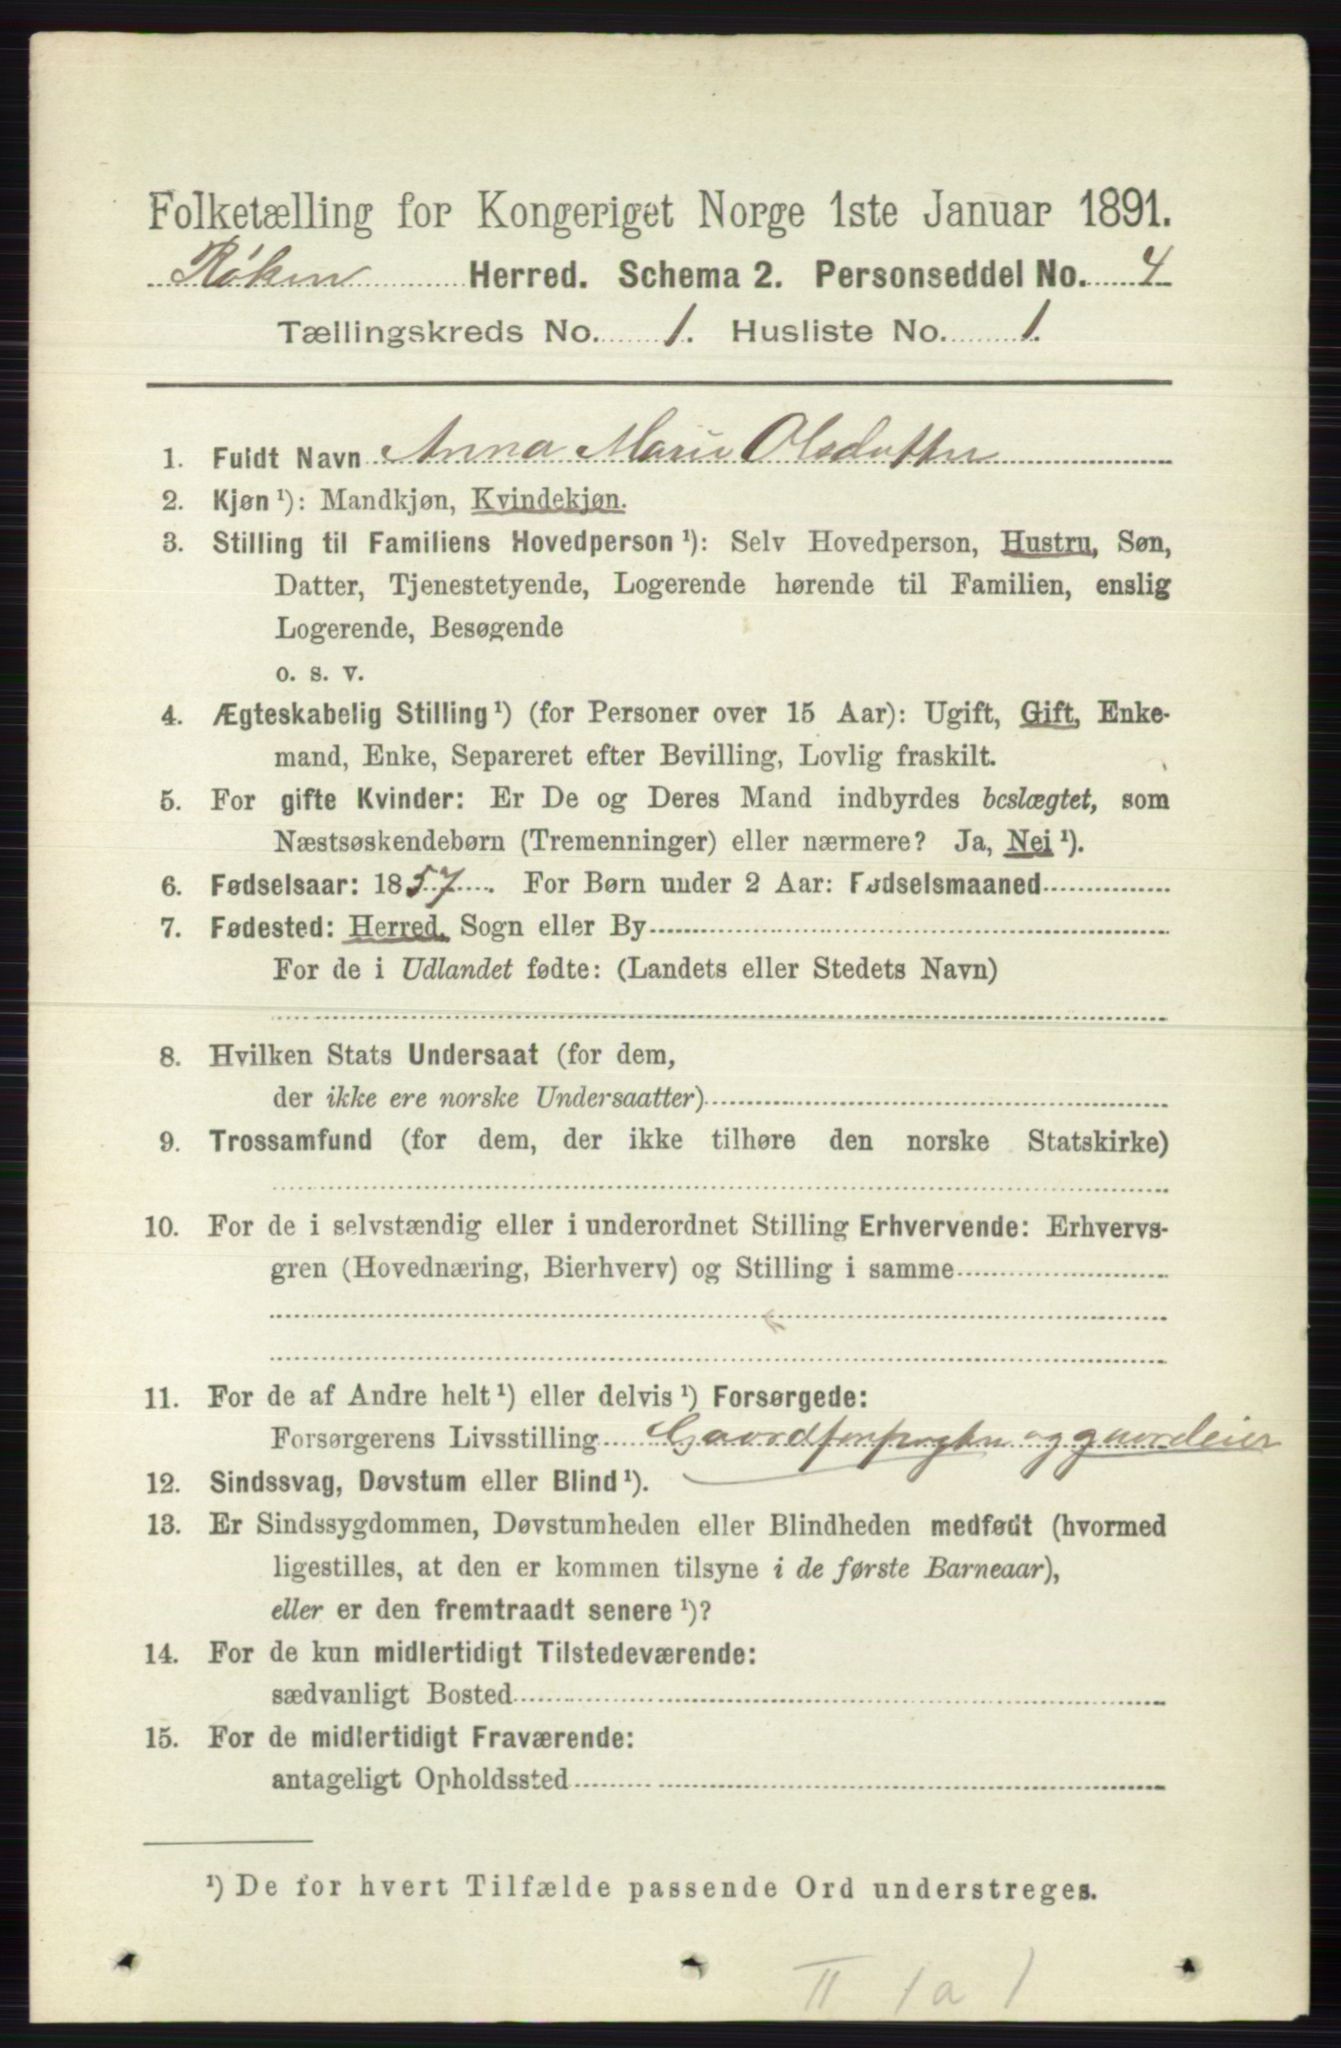 Folketælling for Kongeriget Norge 1ste Januar 1891.
Røken Herred. Schema 2. Personseddel No. 4
Tællingskreds No. 1. Husliste No. 1.
1. Fuldt Navn Anna Marie Olsdatter
2. Kjøn¹): Mandkjøn, Kvindekjøn.
3. Stilling til Familiens Hovedperson¹): Selv Hovedperson, Hustru, Søn,
Datter, Tjenestetyende, Logerende hørende til Familien, enslig
Logerende, Besøgende
o. s. v.
4. Ægteskabelig Stilling¹) (for Personer over 15 Aar): Ugift, Gift, Enke-
mand, Enke, Separeret efter Bevilling, Lovlig fraskilt.
5. For gifte Kvinder: Er De og Deres Mand indbyrdes beslægtet, som
Næstsøskendebørn (Tremenninger) eller nærmere? Ja, Nei¹).
6. Fødselsaar: 1857. For Børn under 2 Aar: Fødselsmaaned
7. Fødested: Herred, Sogn eller By
For de i Udlandet fødte: (Landets eller Stedets Navn)
8. Hvilken Stats Undersaat (for dem,
der ikke ere norske Undersaatter)
9. Trossamfund (for dem, der ikke tilhøre den norske Statskirke)
10. For de i selvstændig eller i underordnet Stilling Erhvervende: Erhvervs-
gren (Hovednæring, Bierhverv) og Stilling i samme
11. For de af Andre helt¹) eller delvis¹) Forsørgede:
Forsørgerens Livsstilling Gaardforpagter og gaardeier
12. Sindssvag, Døvstum eller Blind¹).
13. Er Sindssygdommen, Døvstumheden eller Blindheden medfødt (hvormed
ligestilles, at den er kommen tilsyne i de første Barneaar),
eller er den fremtraadt senere¹)?
14. For de kun midlertidigt Tilstedeværende:
sædvanligt Bosted
15. For de midlertidigt Fraværende:
antageligt Opholdssted
¹) De for hvert Tilfælde passende Ord understreges.
II 1a 1